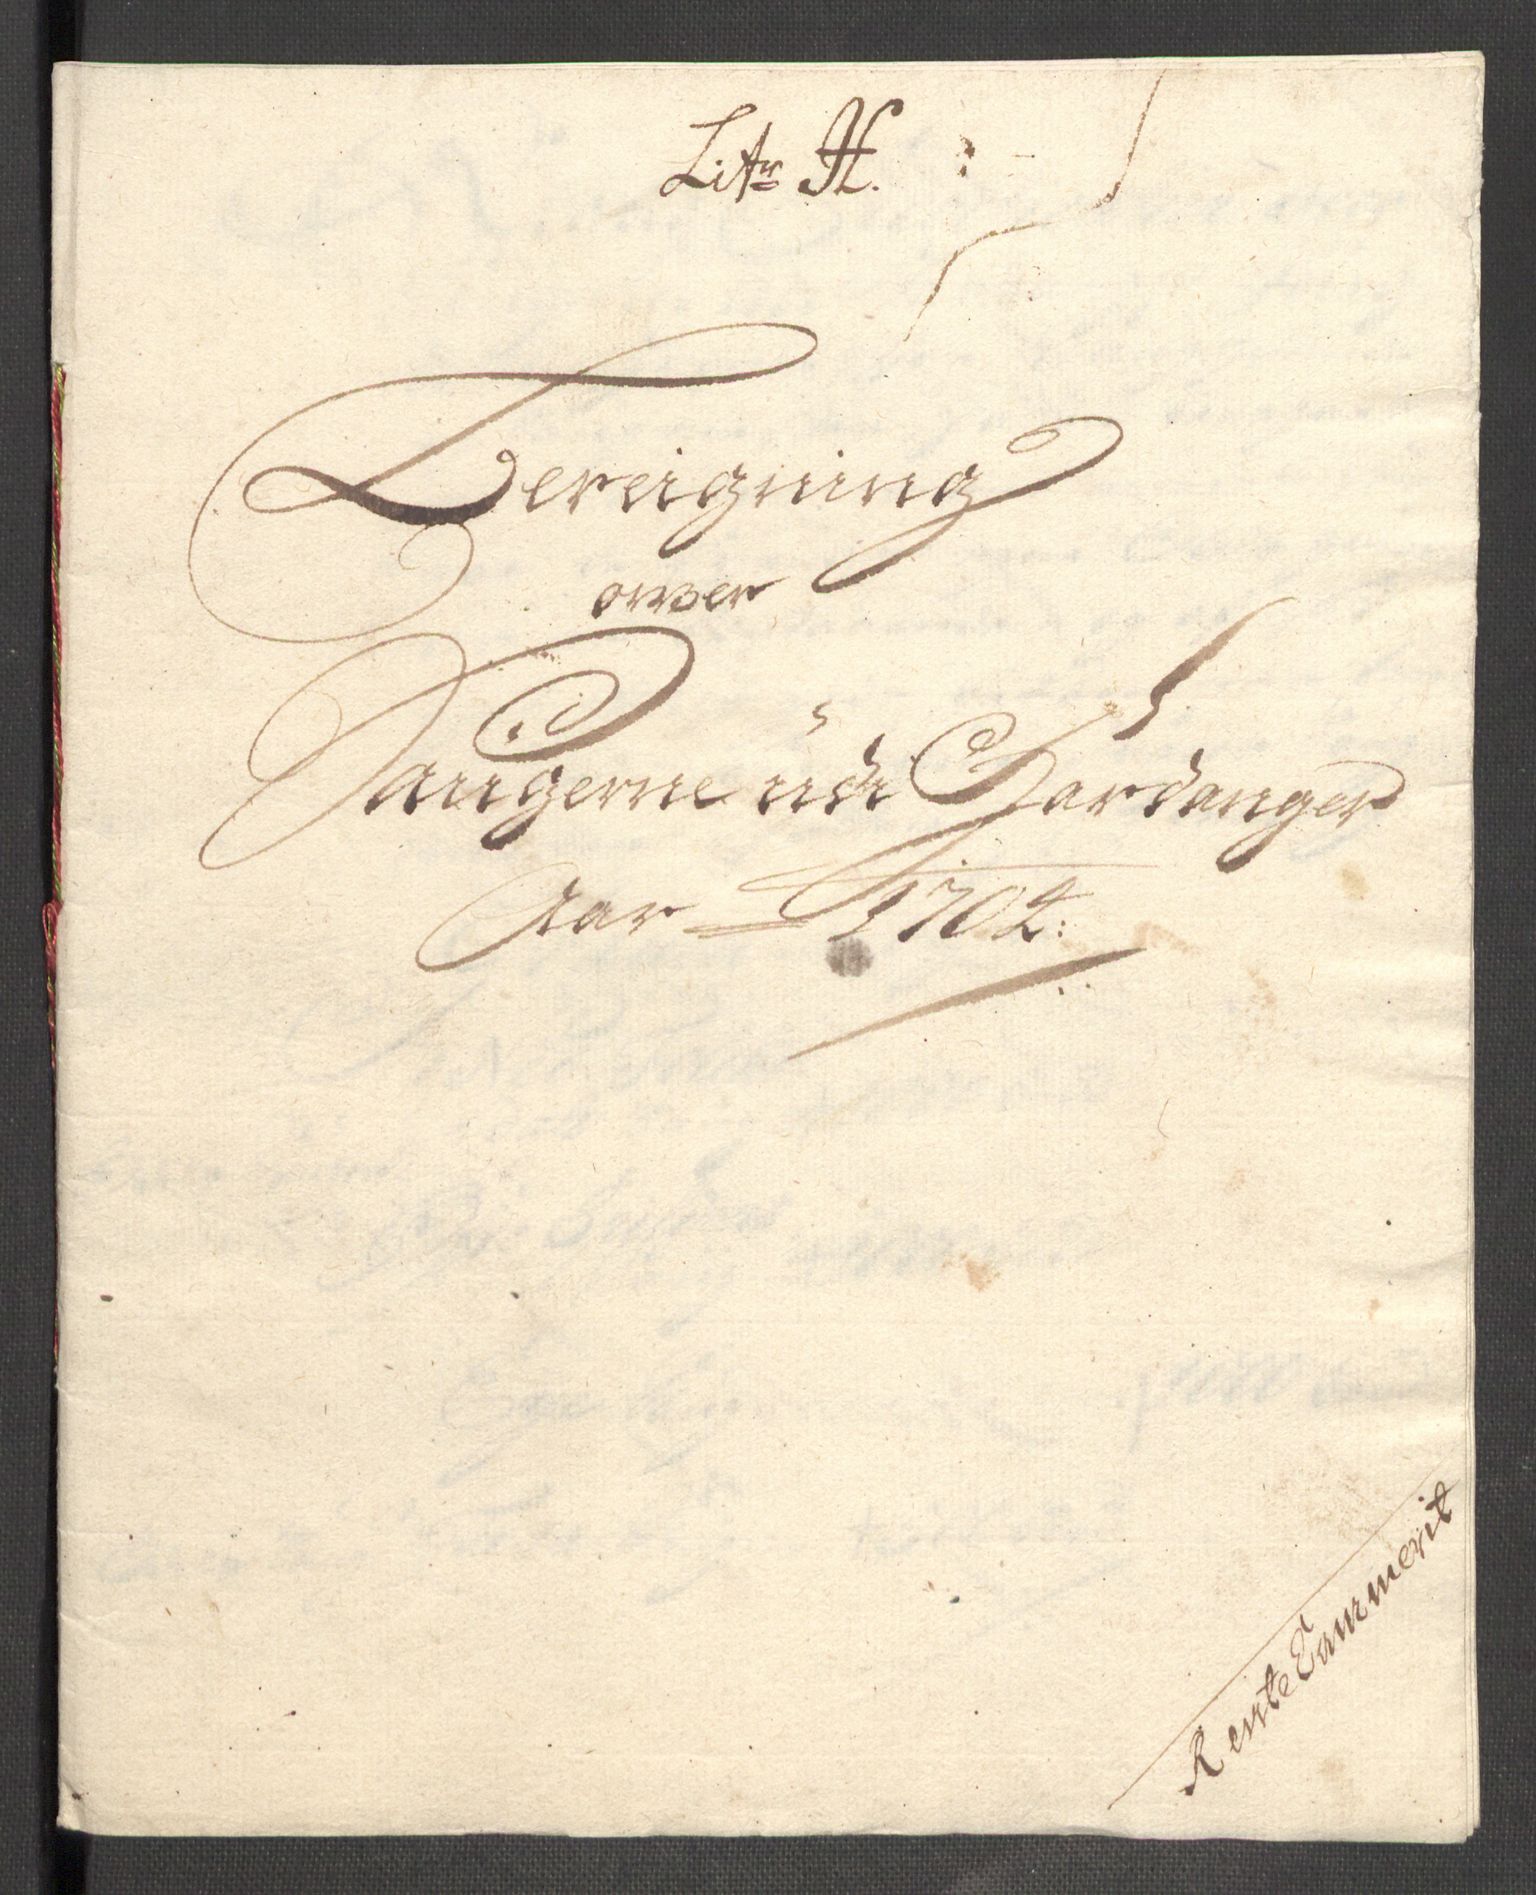 Litr H.
Bereigning
over
Saugerne udi Hardanger
Aar 1704:
Rente Cammerit